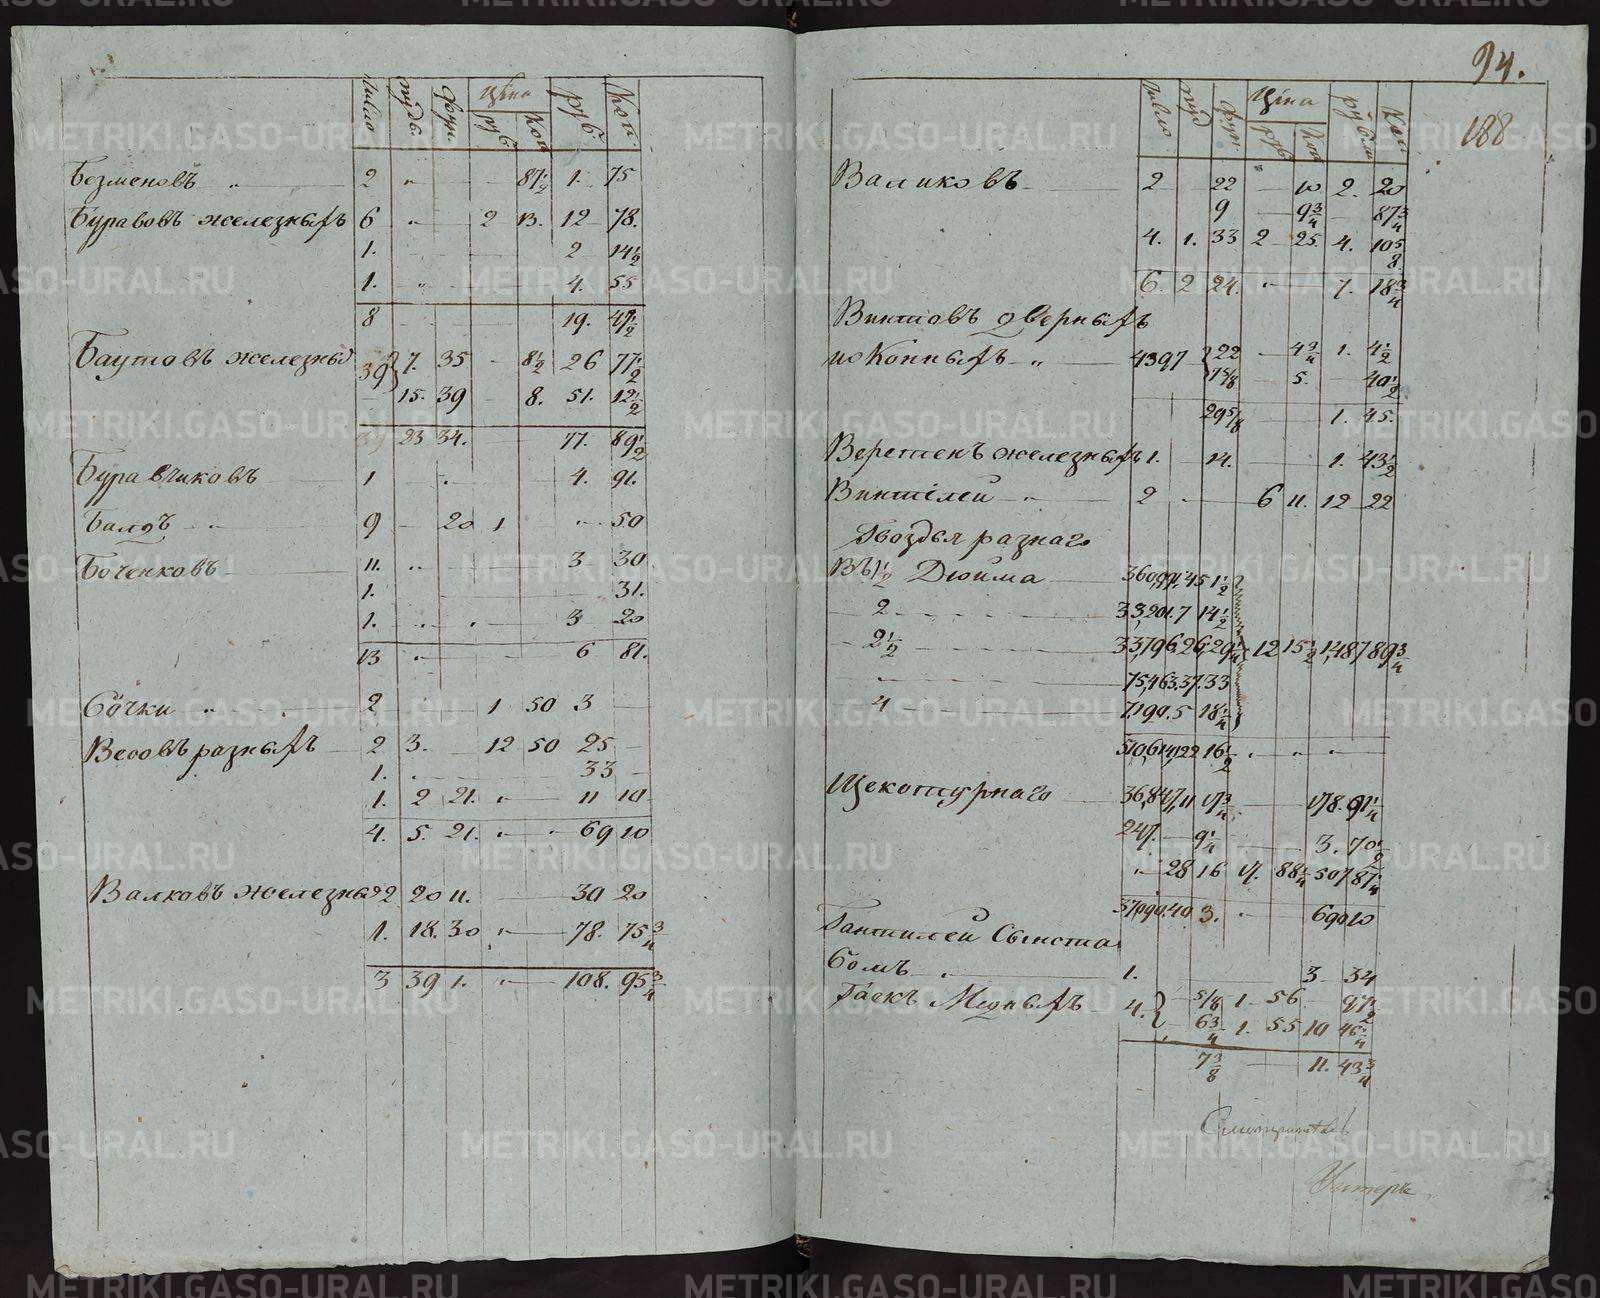 число пудъ фун. Цѣна руб. коп. руб. Коп.
Безменовъ „ 2 „ 87 1/2 1. 75
Буравовъ железныхъ 6 „ 2 13. 12 78.
1. 2 14 1/2
1. „ 4. 55
8 19. 47 1/2
Баутовъ железных 39 7. 35 8 1/2 26 77 1/2
15. 39 8. 51. 12 1/2
39 23 34. 77. 89 1/2
Буравчиковъ 1 4. 91.
Балдъ „ 9 20 1 „ 50
Боченковъ 11. „ 3 30
1. 31.
1. „ „ 3 20
13 „ 6 81.
бочки „ 2 1 50 3
Весовъ разныхъ 2 3. 12 50 25
1. 33
1. 2 21. „ 11 10
4. 5. 21. „ „ 69 10
Валковъ железных 2 20 11. 30 20
1. 18. 30 „ 78. 75 3/4
3 39 1. „ 108. 95 3/4
94.
188
число пуд фун. Цѣна руб коп рубли Коп
Валиковъ 2 22 10 2. 20
9 9 3/4 87 3/4
4. 1. 33 2 25 4. 10 5/8
6. 2 24. „ 7. 18 3/4
Винтовъ дверныхъ
иоконныхъ „ 4397 22 4 3/4 1. 4 1/2
7 5/8 5. 40 1/2
29 5/8 1. 45.
Веретенъ железныхъ 1. 14. 1. 43 1/2
Винтилей „ 2 6 11. 12 22
Гвоздья разнаго
Въ 1 1/2 Дюйма 36099. 45 1 1/2
2 33,201. 7 14 1/2
2 1/2 33,796. 26, 29 1/4 12 15 1/2 1,487 89 3/4
75,463. 37. 33
4 7,190. 5 18 1/4
510,614, 122 16 1/2 „ „ „
Щекотурнаго 36,847, 11 17 3/4 178. 91 1/4
247. 9 1/4 3. 70 1/2
„ 28 16 17. 88 1/4 507 87 1/4
37090. 40 3. „ 690 10
Гантилей Сынста
бомъ „ 1. 3 34
Гаекъ Медныхъ 4. 5/8 1 56 97 1/2
6 3/4 1. 55 10 46 1/4
7 3/8 11. 43 3/4
Смотритель